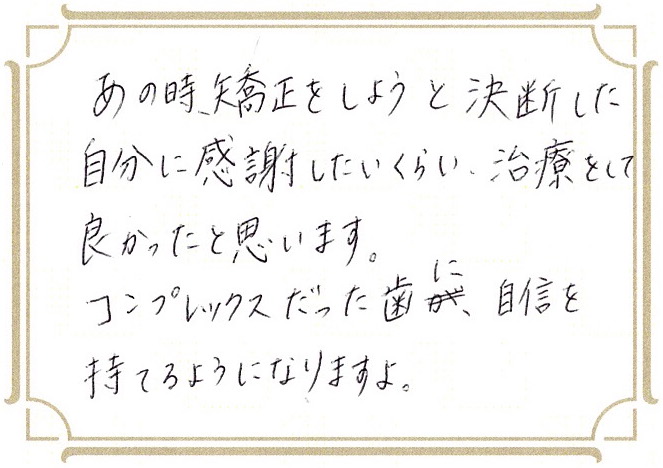 あの時、矯正をしようと決断した
自分に感謝したいくらい、治療をして
良かったと思います。
コンプレックスだった歯に、自信を
持てるようになりますよ。